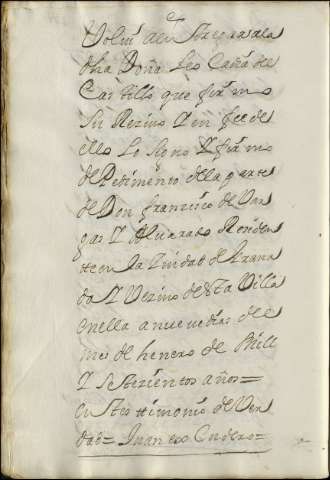 Volui a entregar a la
dha Doña Leocadia de
Castillo que firmo
su Rezivo Y en fee de
ello Lo signo Y firmo
de Pedimento de la parte
de Don francisco de Var
gas Y Alvarado Residen
te en la Ciudad de Grana
da Y Vezino desta Villa
en ella a nueve dias del
mes de henero de Mill
Y Setezientos años=
en testtimonio de Ver
dad= Juan Escudero=